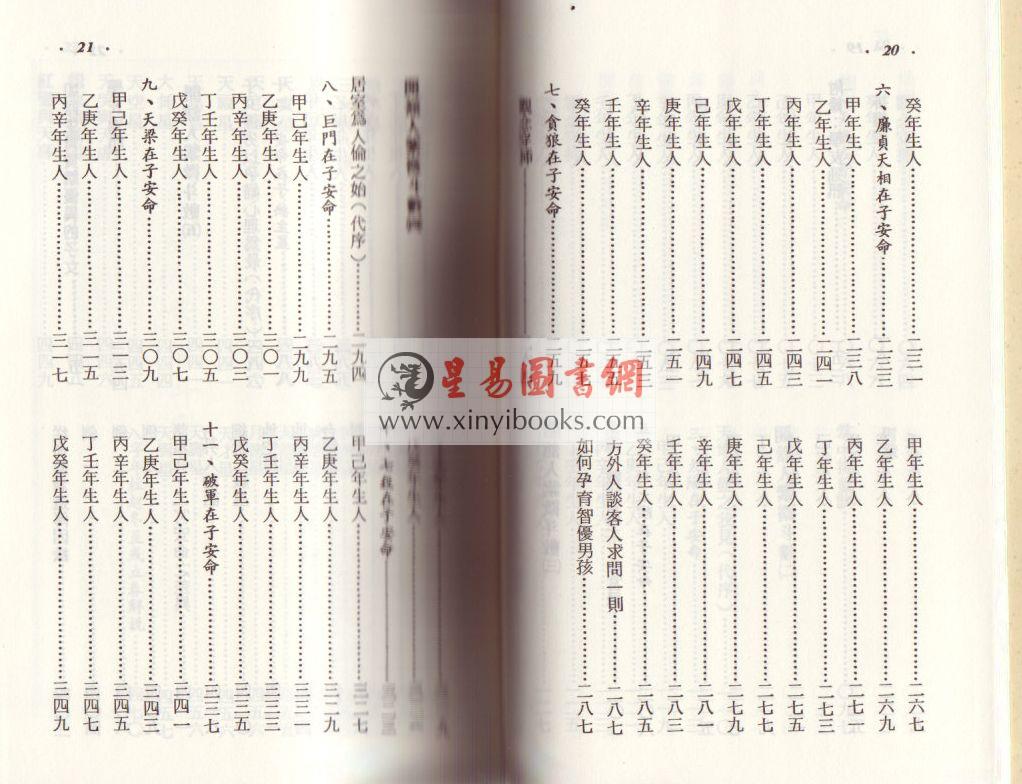 · 20 ·
癸年生人⋯⋯二三一
六、廉貞天相在子安命⋯⋯二三三
甲年生人⋯⋯二三八
乙年生人⋯⋯二四一
丙年生人⋯⋯二四三
丁年生人⋯⋯二四五
戊年生人⋯⋯二四七
己年生人⋯⋯二四九
庚年生人⋯⋯二五一
辛年生人⋯⋯二五三
壬年生人⋯⋯二五五
癸年生人⋯⋯二五七
七、貪狼在子安命⋯⋯二五九
甲年生人⋯⋯二六七
乙年生人⋯⋯二六九
丙年生人⋯⋯二七一
丁年生人⋯⋯二七三
戊年生人⋯⋯二七五
己年生人⋯⋯二七七
庚年生人⋯⋯二七九
辛年生人⋯⋯二八一
壬年生人⋯⋯二八三
癸年生人⋯⋯二八五
方外人談客人求問一則⋯⋯二八七
如何孕育智優男孩⋯⋯二八七
· 21 ·
居室爲人倫之始（代序）⋯⋯二九四
八、巨門在子安命⋯⋯二九五
甲己年生人⋯⋯二九九
乙庚年生人⋯⋯三〇一
丙辛年生人⋯⋯三〇三
丁壬年生人⋯⋯三〇五
戊癸年生人⋯⋯三〇七
九、天梁在子安命⋯⋯三〇九
甲己年生人⋯⋯三一三
乙庚年生人⋯⋯三一五
丙辛年生人⋯⋯三一七
甲己年生人⋯⋯三二七
乙庚年生人⋯⋯三二九
丙辛年生人⋯⋯三三一
丁壬年生人⋯⋯三三三
戊癸年生人⋯⋯三三五
十一、破軍在子安命⋯⋯三三七
甲己年生人⋯⋯三四一
乙庚年生人⋯⋯三四三
丙辛年生人⋯⋯三四五
丁壬年生人⋯⋯三四七
戊癸年生人⋯⋯三四九
星易圖書網
www.xinyibooks.com